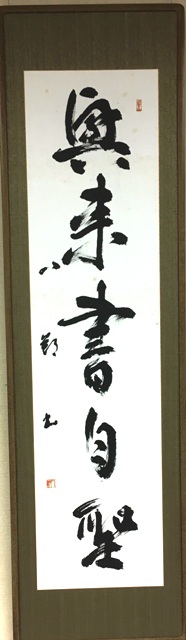 興来書自聖